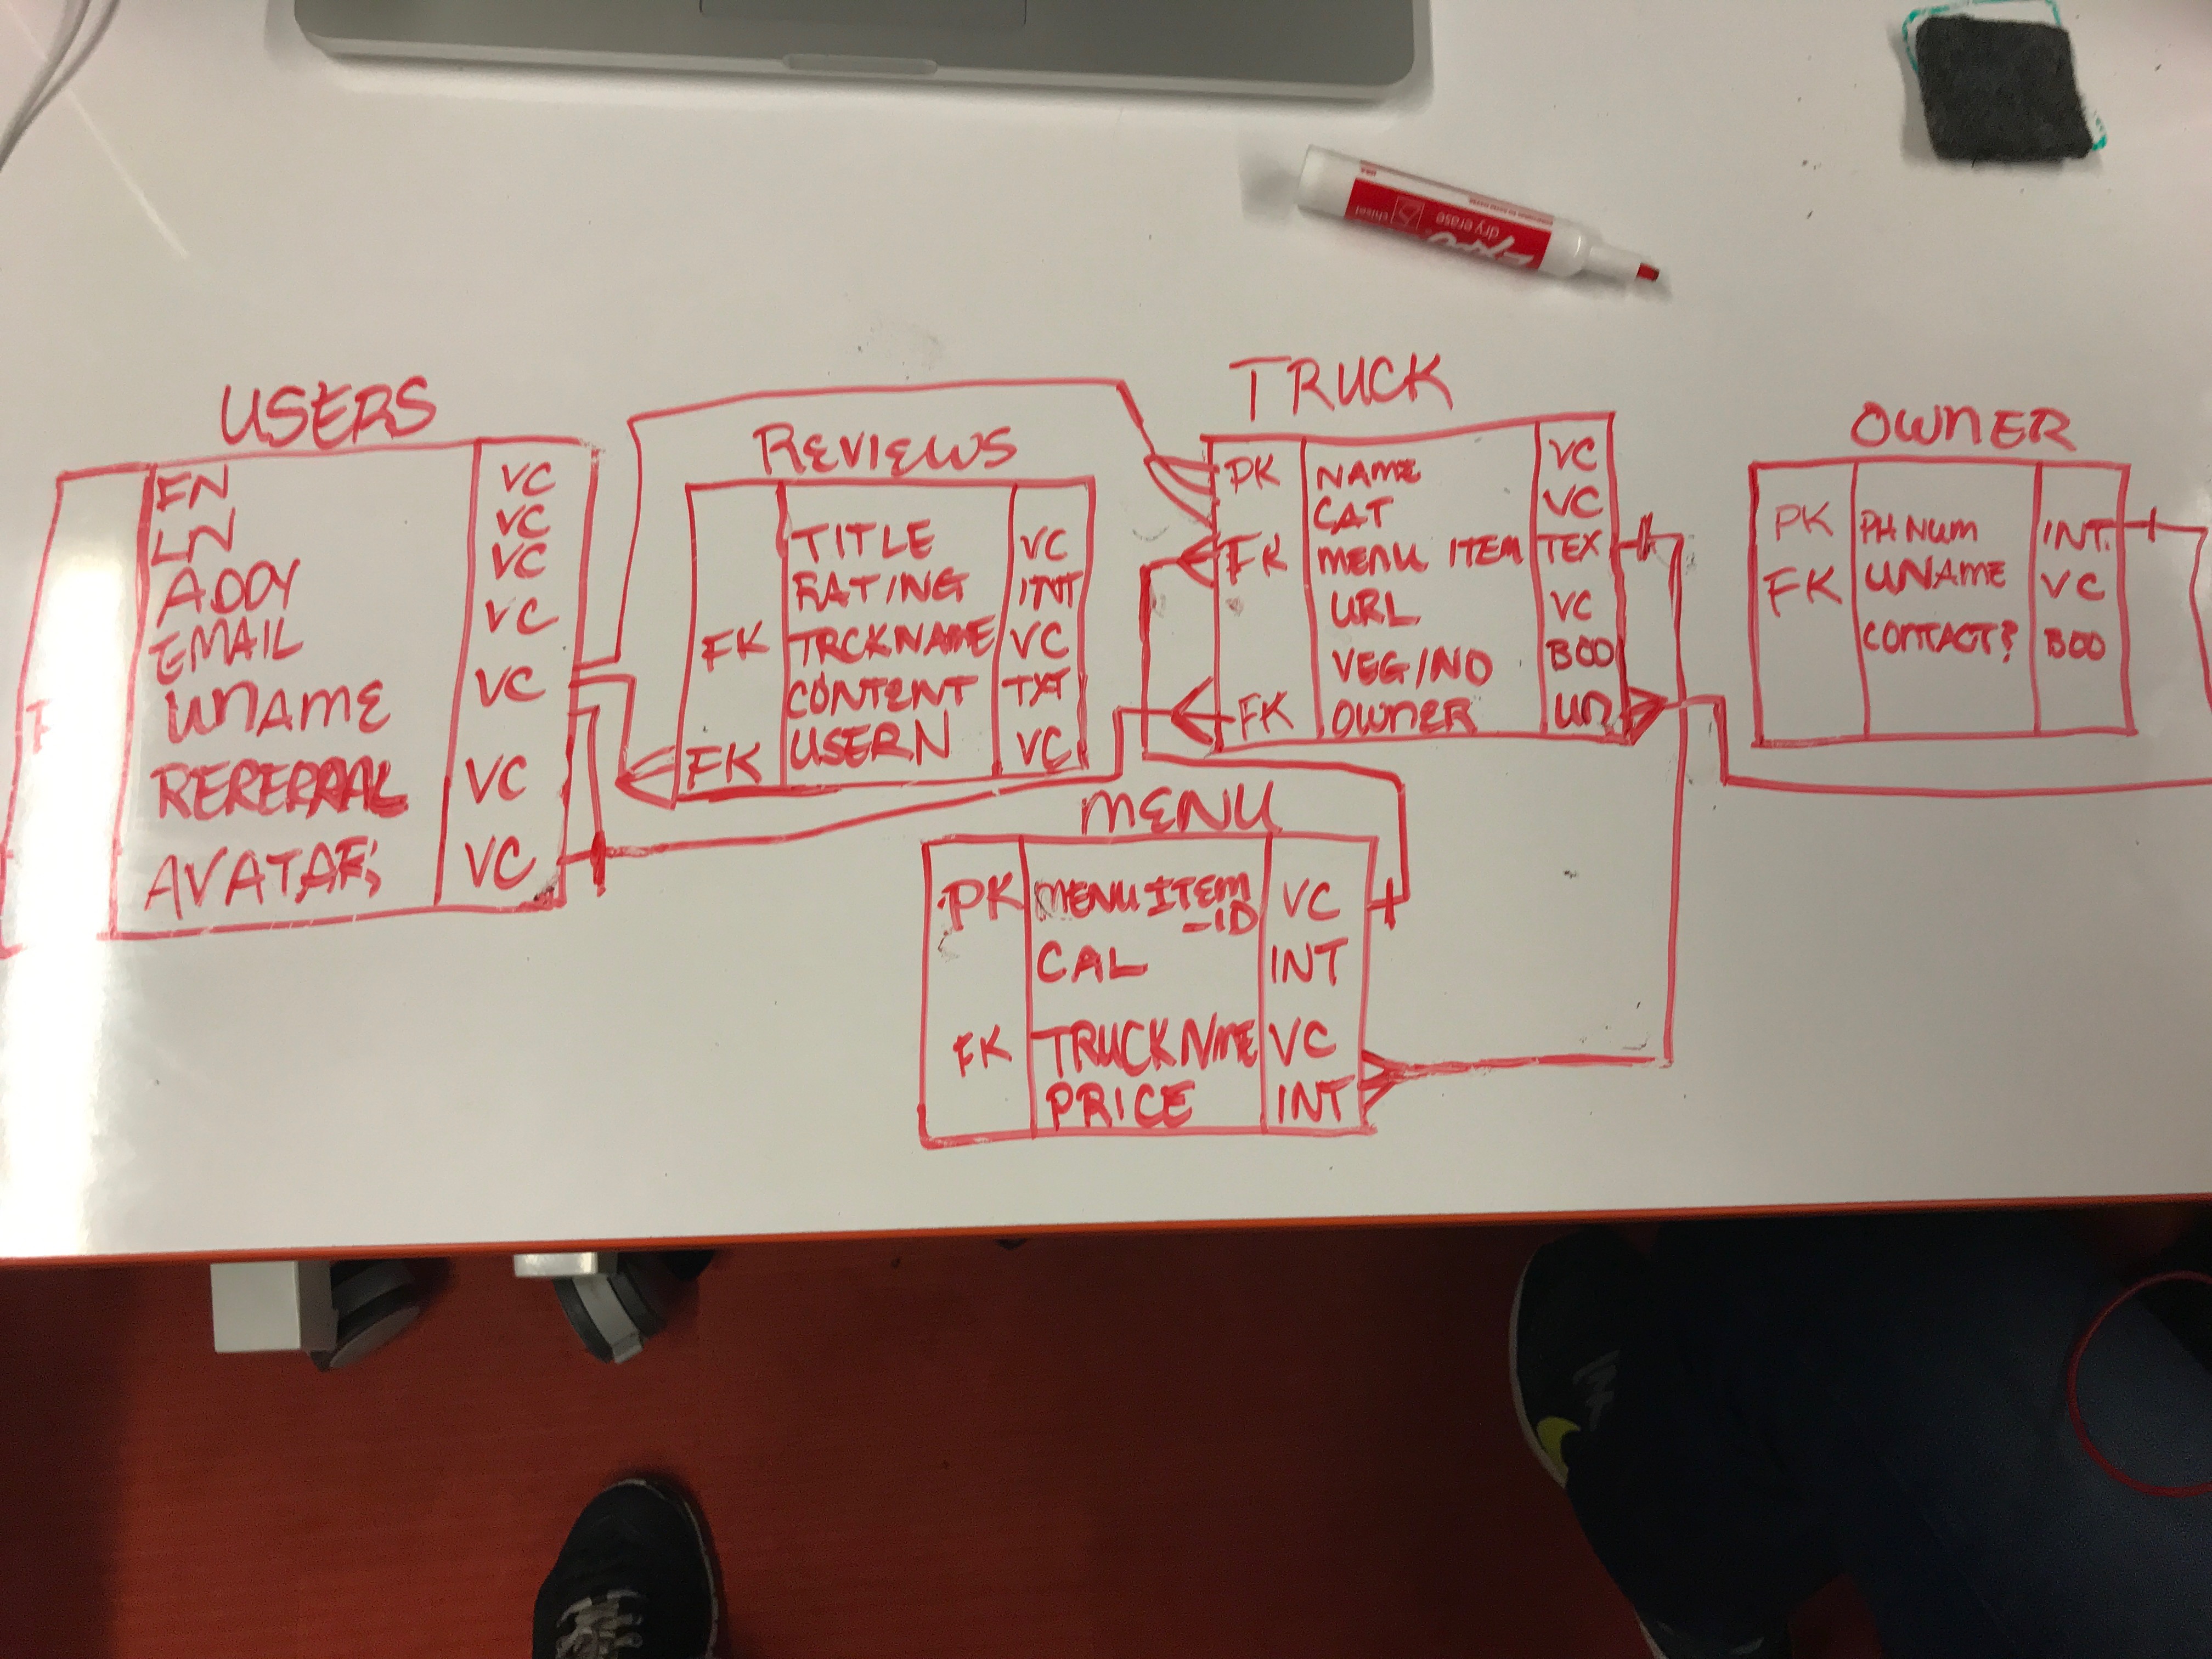 USERS
FN VC
LN VC
ADDY VC
EMAIL VC
UNAME VC
RERERRAL VC
AVATAR; VC
REVIEWS
TITLE VC
RATING INT
FK TRCKNAME VC
CONTENT TXT
FK USERN VC
TRUCK
PK NAME VC
CAT VC
FK MENU ITEM TEX
URL VC
VEG/NO BOO
FK OWNER UN
OWNER
PK PHNUM INT.
FK UNAME VC
CONTACT? BOO
MENU
PK MENUITEM VC
_ID
CAL INT
FK TRUCKNME VC
PRICE INT
EXPO
dry erase
chisel